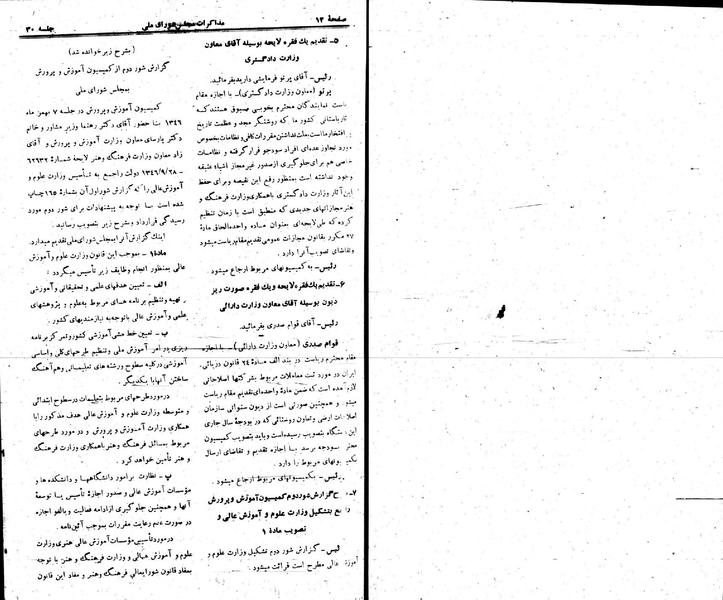 صفحهٔ ۱۲
مذاکرات مجلس شورای ملی
جلسه ۳۰
۵- تقدیم یک فقره لایحه بوسیله آقای معاون
وزارت دادگستری
رئیس- آقای پرتو فرمایشی دارید بفرمائید.
پرتو (معاون وزارت دادگستری)- با اجازه مقام
است نمایندگان محترم بخوبی مسبوق هستند که
تار باستانی کشور ما که روشنگر مجد و عظمت تاریخ
افتخار ما است، نداشتن مقررات کافی و نظامات بخصوص
مورد تجاوز عده‌ای افراد سودجو قرار گرفته و نظامات
خاصی هم برای جلوگیری از صدور غیرمجاز اشیاء عتیقه
وجود نداشته است بمنظور رفع این نقیصه و برای حفظ
این آثار وزارت دادگستری با همکاری وزارت فرهنگ و
هنر مجازاتهای جدیدی که منطبق است با زمان تنظیم
کرده که طی لایحه‌ای بعنوان ماده واحده الحاق مادهٔ
۲۷ مکرر بقانون مجازات عمومی تقدیم مقام ریاست میشود
و تقاضای تصویب آنرا دارد.
رئیس- به کمیسیونهای مربوط ارجاع میشود.
۶- تقدیم یک فقره لایحه و یک فقره صورت ریز
دیون بوسیله آقای معاون وزارت دارائی
رئیس- آقای قوام صدری بفرمائید.
قوام صدری (معاون وزارت دارائی)- با اجازه
مقام محترم ریاست در بند الف مادهٔ ۲۴ قانون
ایران در مورد ثبت معاملات مربوط بشرکتها اصلاحاتی
لازم آمده است که ضمن مادهٔ واحده‌ای تقدیم مقام ریاست
میشود و همچنین صورتی است از دیون سنواتی سازمان
اصلاحات ارضی و تعاون روستائی که در بودجهٔ سال جاری
این دستگاه بتصویب رسیده است و باید بتصویب کمیسیون
محترم بودجه برسد با اجازه تقدیم و تقاضای ارسال
بکمیسیونهای مربوط را دارد.
رئیس- بکمیسیونهای مربوط ارجاع میشود.
۷- گزارش شور دوم کمیسیون آموزش و پرورش
راجع بتشکیل وزارت علوم و آموزش عالی و
تصویب مادهٔ ۱
رئیس- گزارش شور دوم تشکیل وزارت علوم و
آموزش عالی مطرح است قرائت میشود.
(بشرح زیر خوانده شد)
گزارش شور دوم از کمیسیون آموزش و پرورش
بمجلس شورای ملی
کمیسیون آموزش و پرورش در جلسه ۷ بهمن ماه
۱۳۴۶ با حضور آقای دکتر رهنما وزیر مشاور و خانم
دکتر پارسای معاون وزارت آموزش و پرورش و آقای
زاد معاون وزارت فرهنگ و هنر لایحهٔ شمارهٔ ۶۲۶۳۲
- ۱۳۴۶/۹/۲۸ دولت راجع به تأسیس وزارت علوم و
آموزش عالی را که گزارش شور اول آن بشمارهٔ ۱۶۵ چاپ
شده است با توجه به پیشنهادات برای شور دوم مورد
رسیدگی قرار داد و بشرح زیر بتصویب رسانید.
اینک گزارش آنرا بمجلس شورای ملی تقدیم میدارد.
مادهٔ ۱- بموجب این قانون وزارت علوم و آموزش
عالی بمنظور انجام وظایف زیر تأسیس میگردد:
الف- تعیین هدفهای علمی و تحقیقاتی و آموزشی
و تهیه و تنظیم برنامه های مربوط به علوم و پژوهشهای
علمی و آموزش عالی با توجه به نیازمندیهای کشور.
ب- تعیین خط مشی آموزشی کشور و تمرکز برنامه
ریزی در امر آموزش ملی و تنظیم طرحهای کلی و اساسی
آموزشی در کلیه سطوح و رشته های تعلیماتی و هم آهنگ
ساختن آنها با یکدیگر.
در مورد طرحهای مربوط بتعلیمات در سطوح ابتدائی
و متوسطه وزارت علوم و آموزش عالی هدف مذکور را با
همکاری وزارت آموزش و پرورش و در مورد طرحهای
مربوط بمسائل فرهنگ و هنر با همکاری وزارت فرهنگ
و هنر تأمین خواهد کرد.
پ- نظارت بر امور دانشگاهها و دانشکده ها و
مؤسسات آموزش عالی و صدور اجازهٔ تأسیس یا توسعهٔ
آنها و همچنین جلوگیری از ادامه فعالیت و یا لغو اجازه
در صورت عدم رعایت مقررات بموجب آئین نامه.
در مورد تأسیس مؤسسات آموزش عالی هنری وزارت
علوم و آموزش عالی و وزارت فرهنگ و هنر با توجه
بمفاد قانون شورایعالی فرهنگ و هنر و مفاد این قانون